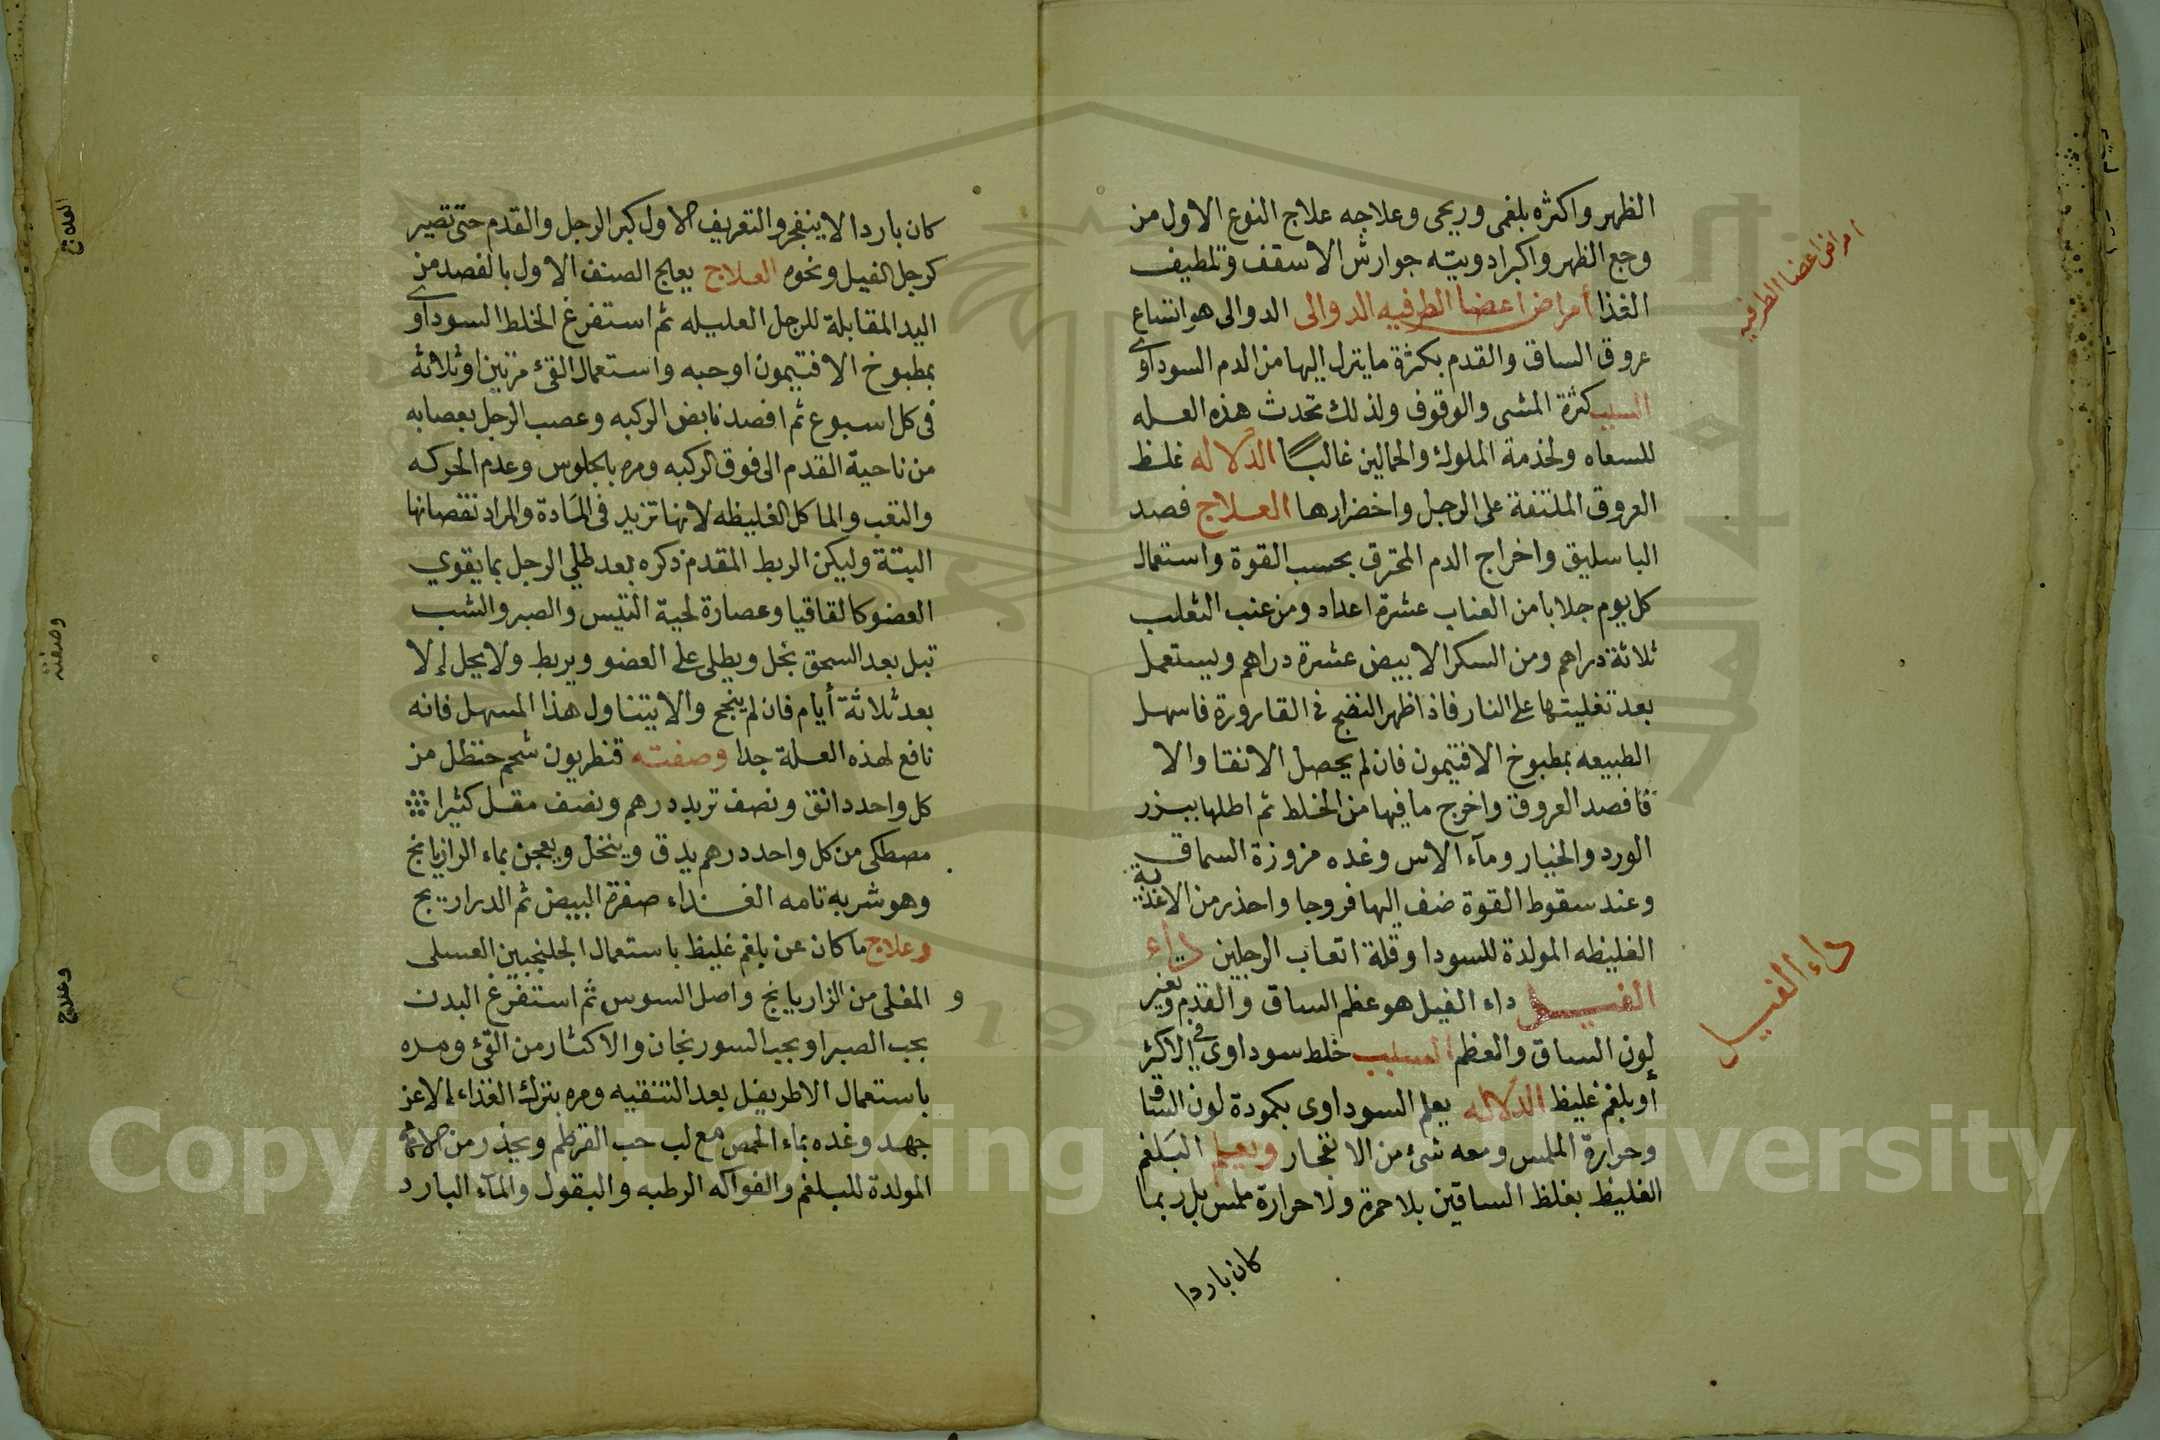 الظهر واكثره بلغمى وريحى وعلاجه علاج النوع الاول من
وجع الظهر واكبر ادويته جوارش الاسقف وتلطيف
الغذا أمراض اعضا الطرفيه الدوالى الدوالى هو اتساع
عروق الساق والقدم بكثرة ما ينزل إليها من الدم السوداوى
السبب كثرة المشى والوقوف ولذلك تحدث هذه العله
للسعاه ولخدمة الملوك والحمالين غالبًا الدّلاله غلظ
العروق الملتفة على الرجل واخضرارها العلاج فصد
الباسليق واخراج الدم المحترق بحسب القوة واستعمال
كل يوم جلابا من العناب عشرة اعداد ومن عنب الثعلب
ثلاثة دراهم ومن السكر الابيض عشرة دراهم ويستعمل
بعد تغليتها على النار فاذا ظهر النضج فى القارورة فاسهل
الطبيعه بمطبوخ الافتيمون فان لم يحصل الانقا والا
فافصد العروق واخرج ما فيها من الخلط ثم اطلها ببزر
الورد والخيار ومآء الاس وغده مزوزة السماق
وعند سقوط القوة ضف إليها فروجا واحذر من الاغذية
الغليظه المولدة للسودا وقلة اتعاب الرجلين داء
الفيل داء الفيل هو عظم الساق والقدم وتغير
لون الساق والعظم السبب خلط سوداوى فى الاكثر
أو بلغم غليظ الدلاله يعلم السوداوى بكمودة لون الساق
وحرارة الملمس ومعه شئ من الانفجار ويعلم البلغم
الغليظ بغلظ الساقين بلا حمرة ولا حرارة ملمس بل ربما
كان باردا
امراض اعضا الطرفيه
داء الفيل
كان باردا لا ينفجر والتعريف الاول كبر الرجل والقدم حتى تصير
كرجل الفيل ونحوه العلاج يعالج الصنف الاول بالفصد من
اليد المقابلة للرجل العليله ثم استفرغ الخلط السوداوى
بمطبوخ الافتيمون او حبه واستعمال القئ مرتين او ثلاثة
فى كل اسبوع ثم افصد نابض الركبه وعصب الرجل بعصابه
من ناحية القدم الى فوق الركبه ومره بالجلوس وعدم الحركه
والتعب والماكل الغليظه لانها تزيد فى المادة والمراد نقصانها
البتة وليكن الربط المقدم ذكره بعد طلي الرجل بما يقوي
العضو كالقاقيا وعصارة لحية التيس والصبر والشب
تبل بعد السحق بخل ويطلى على العضو ويربط ولا يحل إلا
بعد ثلاثة أيام فان لم ينجح والا يتناول هذا المسهل فانه
نافع لهذه العلة جدا وصفته قنطريون شحم حنظل من
كل واحد دانق ونصف تربد درهم ونصف مقل كثيرا
مصطكى من كل واحد درهم يدق وينخل ويعجن بماء الرازيانج
وهو شربه تامه الغذاء صفرة البيض ثم الدراريج
وعلاج ما كان عن بلغم غليظ باستعمال الجلنجبين العسلى
و المغلى من الزاريانج واصل السوس ثم استفرغ البدن
بحب الصبر او بحب السورنجان والاكثار من القئ ومره
باستعمال الاطريفل بعد التنقيه ومره بترك الغذاء الا عن
جهد وغده بماء الحمص مع لب حب القرطم ويحذر من
المولدة للبلغم والفواكه الرطبه والبقول والمآء البارد
العلاج
وصفته
وعلاج
Copyright © King Saud University